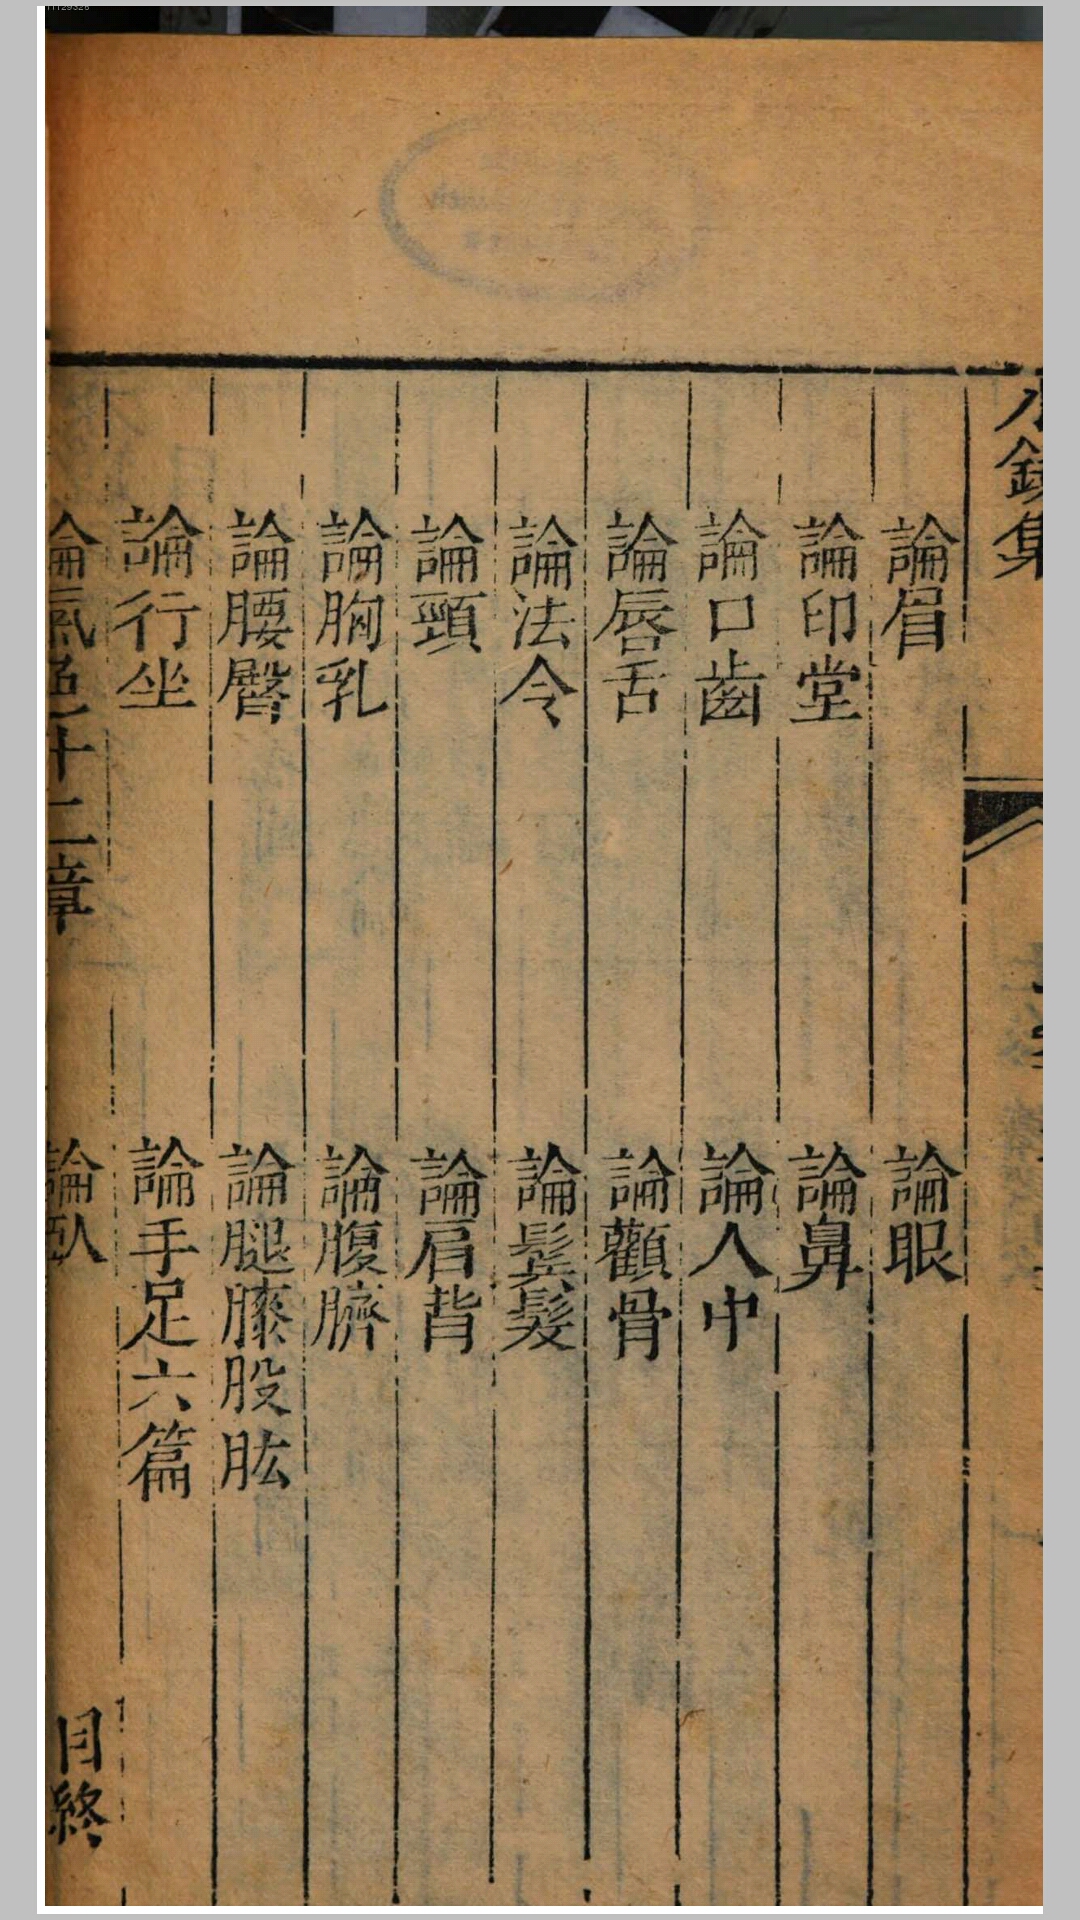 集
論眉
論眼
論印堂
論鼻
論口齒
論人中
論唇舌
論顴骨
論法令
論鬓髮
論頸
論肩背
論胸乳
論腹臍
論腰臀
論腿膝股肱
論行坐
論手足六篇
論氣色十二章
論臥
目終
11129328